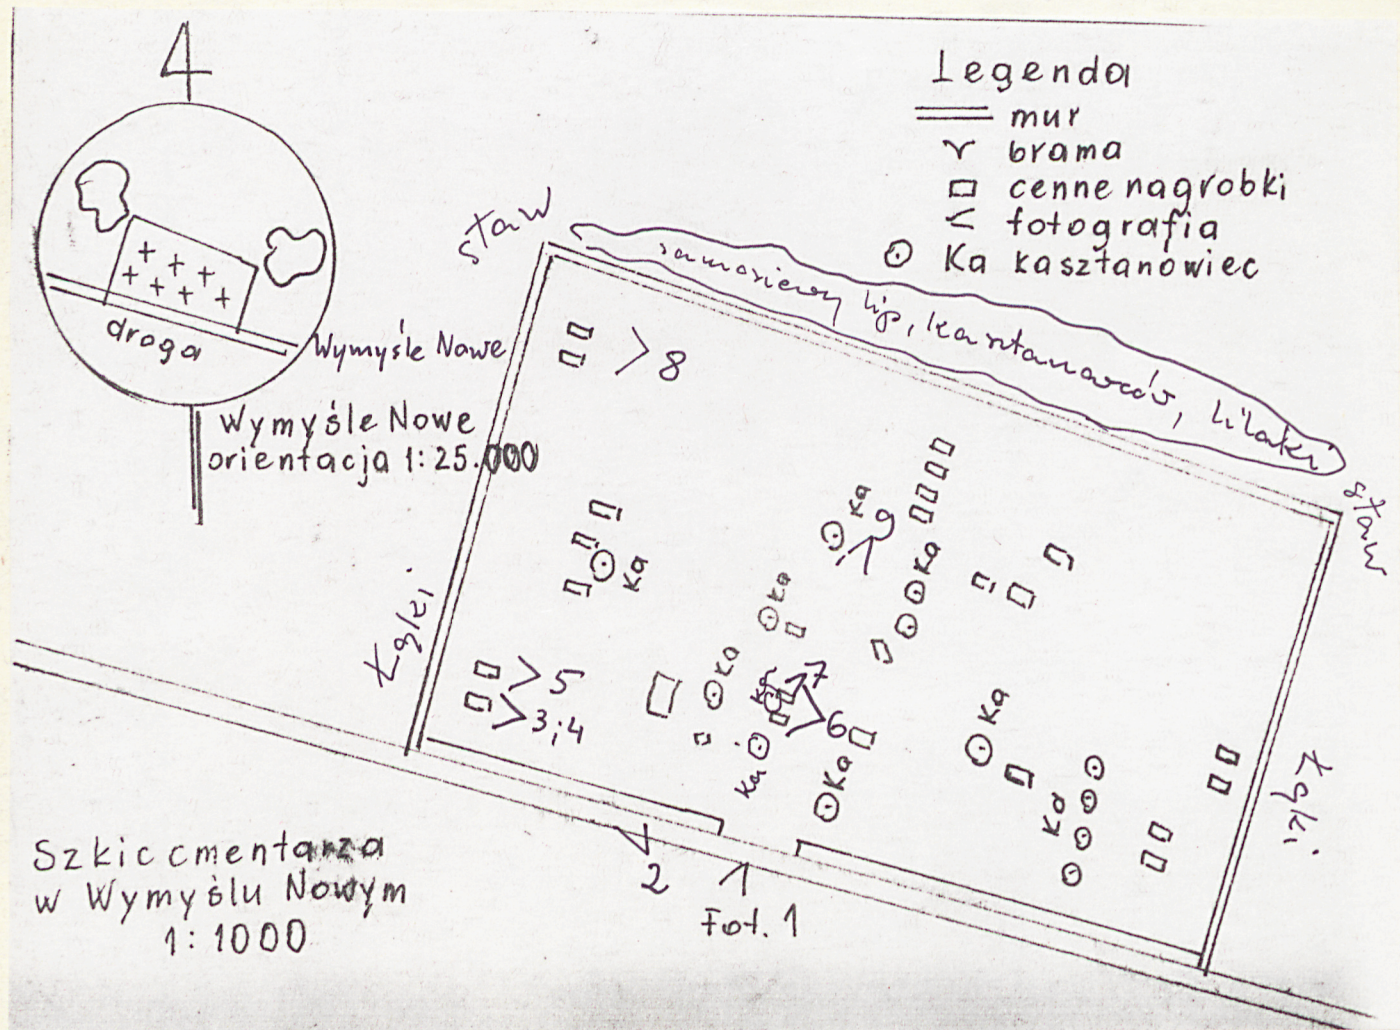 4
droga
Wymyśle Nowe
Wymyśle Nowe
orientacja 1:25.000
Legenda
mur
brama
cenne nagrobki
fotografia
Ka kasztanowiec
staw
samosiewy lip, kasztanowców, lilaki
staw
8
Ka
9
Ka
Ka
Ka
Łąki.
5
3;4
Ka
Ka
7
6
Ka
Ka
Ka
Ka
Łąki.
2
1
Fot. 1
Szkic cmentarza
w Wymyślu Nowym
1:1000